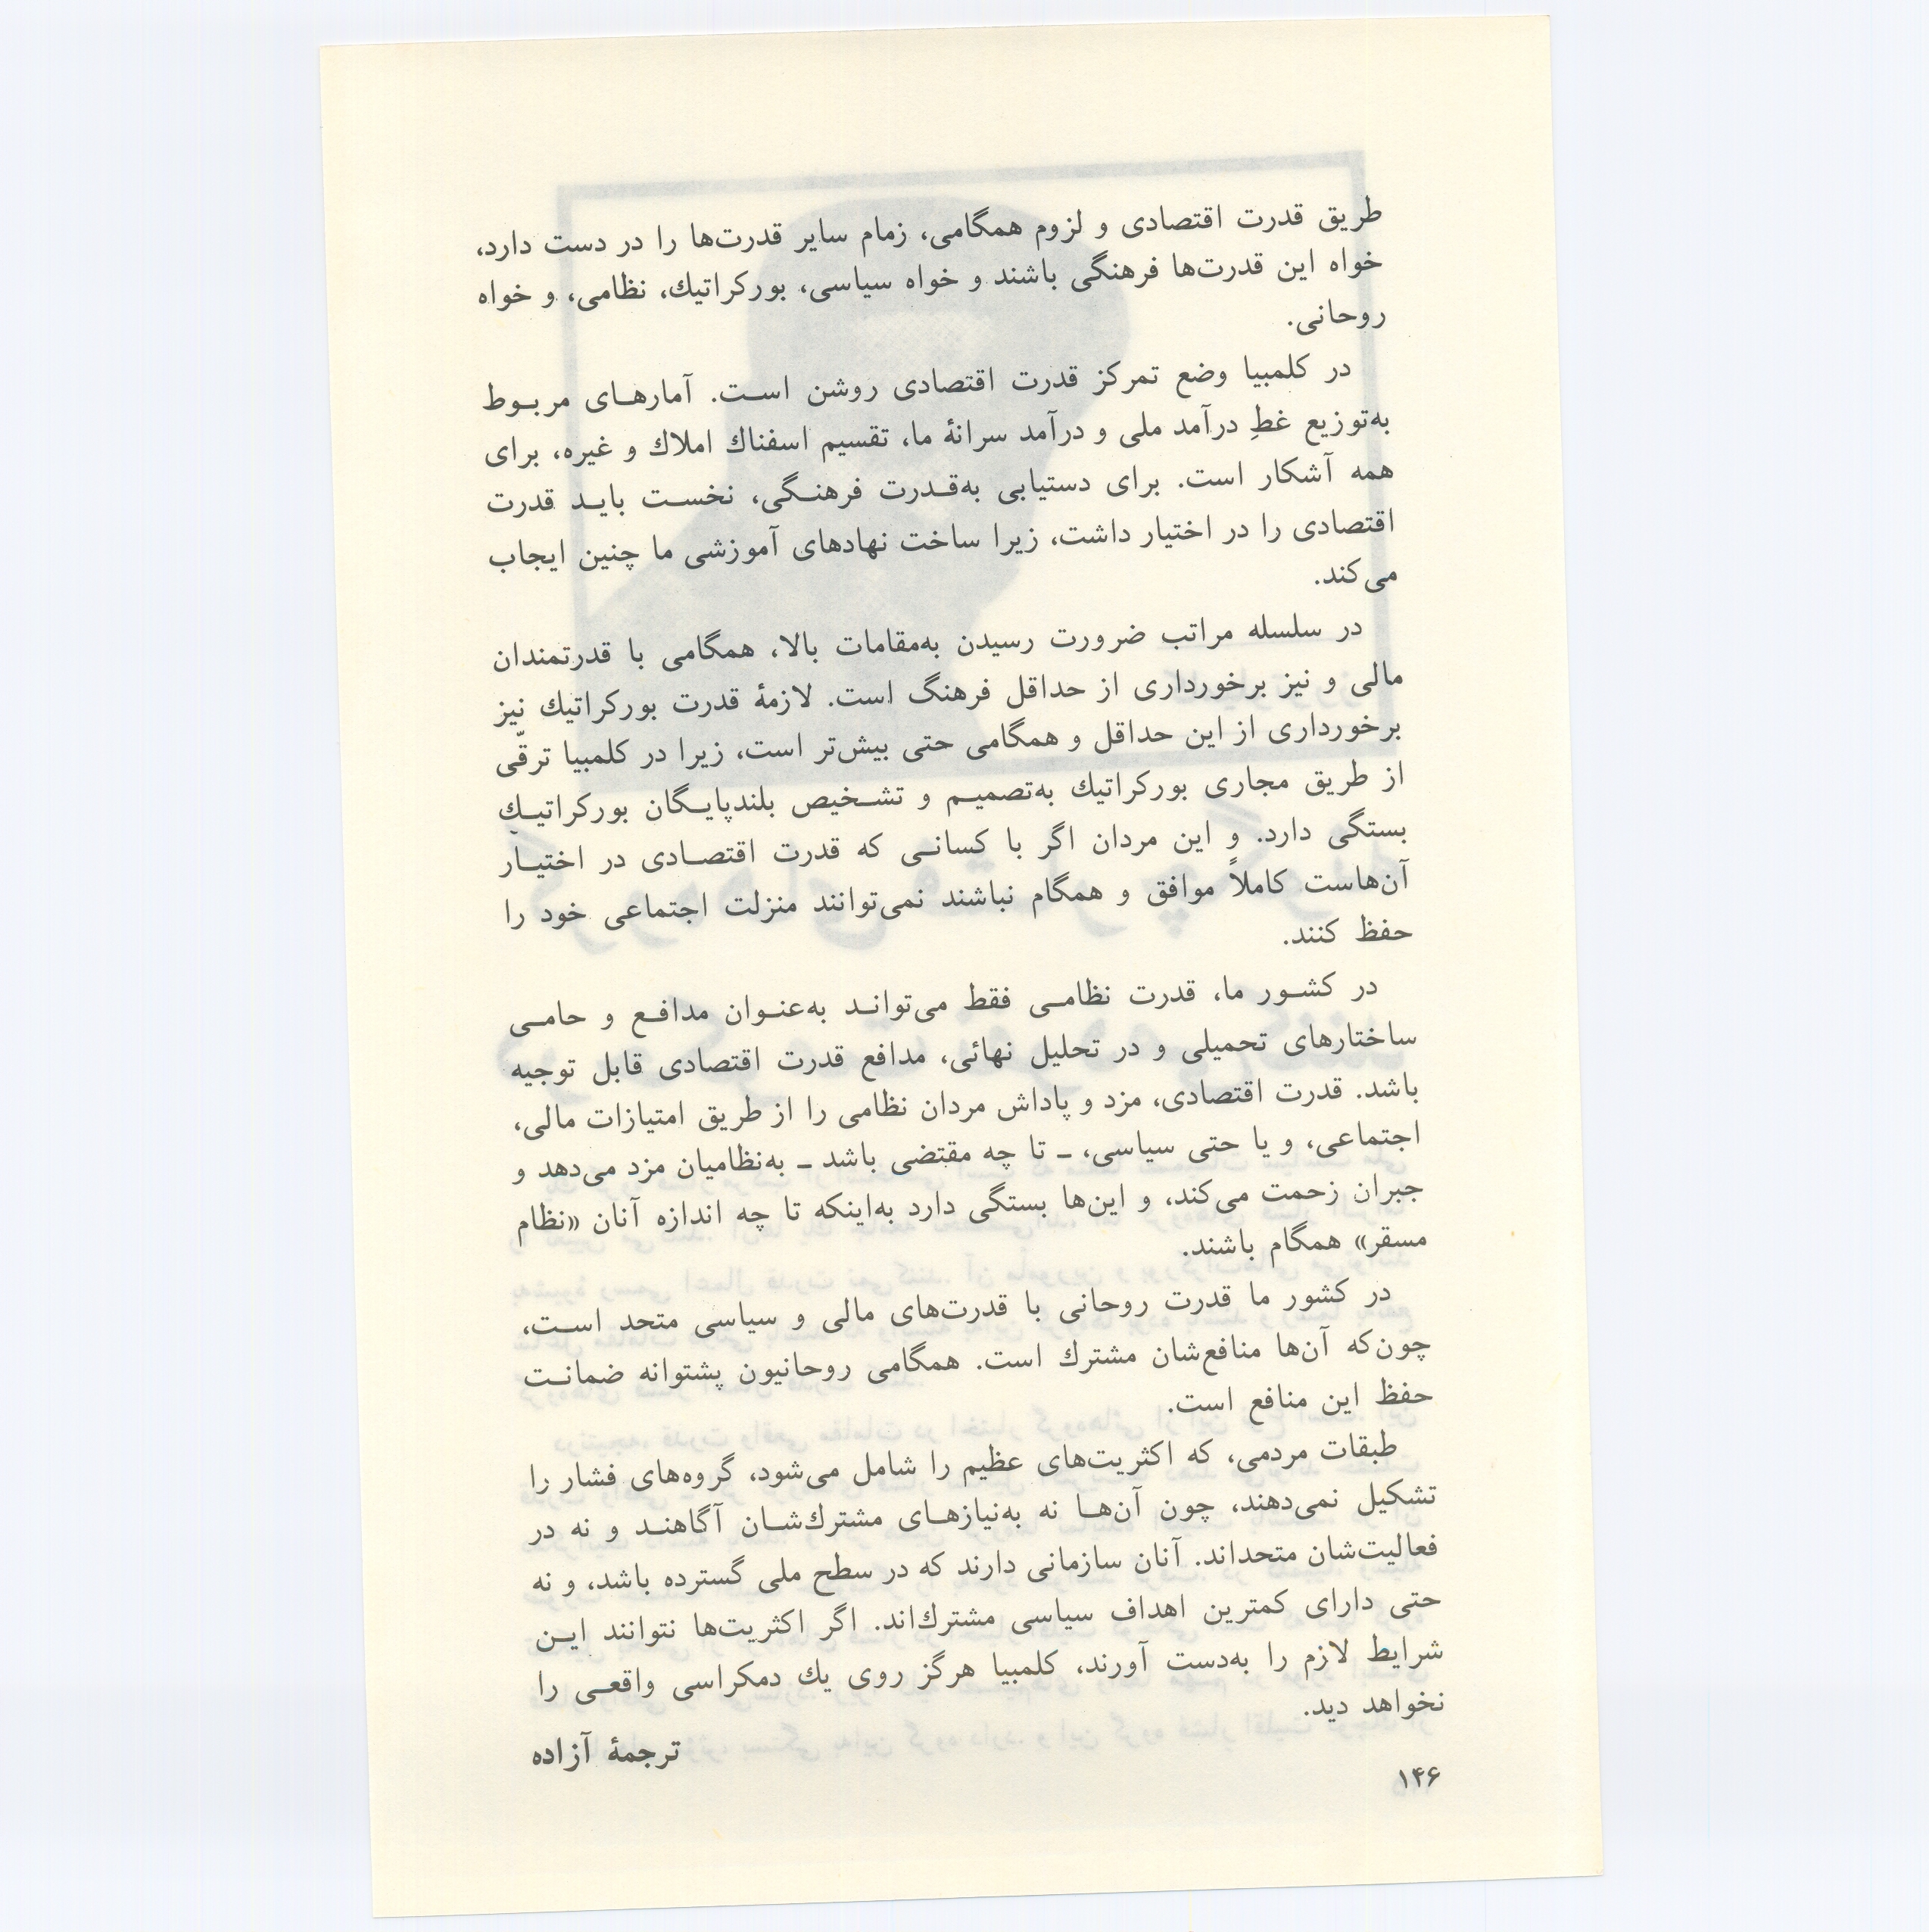 طریق قدرت اقتصادی و لزوم همگامی، زمام سایر قدرت‌ها را در دست دارد،
خواه این قدرت‌ها فرهنگی باشند و خواه سیاسی، بورکراتیك، نظامی، و خواه
روحانی.
در کلمبیا وضع تمرکز قدرت اقتصادی روشن اســت. آمارهــای مربــوط
به‌توزیع غلطِ درآمد ملی و درآمد سرانهٔ ما، تقسیم اسفناك املاك و غیره، برای
همه آشکار است. برای دستیابی به‌قــدرت فرهنــگی، نخســت بایــد قدرت
اقتصادی را در اختیار داشت، زیرا ساخت نهادهای آموزشی ما چنین ایجاب
می‌کند.
در سلسله مراتب ضرورت رسیدن به‌مقامات بالا، همگامی با قدرتمندان
مالی و نیز برخورداری از حداقل فرهنگ است. لازمهٔ قدرت بورکراتیك نیز
برخورداری از این حداقل و همگامی حتی بیش‌تر است، زیرا در کلمبیا ترقّی
از طریق مجاری بورکراتیك به‌تصمیــم و تشــخیص بلندپایــگان بورکراتیــك
بستگی دارد. و این مردان اگر با کسانــی که قدرت اقتصــادی در اختیــار
آن‌هاست کاملاً موافق و همگام نباشند نمی‌توانند منزلت اجتماعی خود را
حفظ کنند.
در کشــور ما، قدرت نظامــی فقط می‌توانــد به‌عنــوان مدافــع و حامــی
ساختارهای تحمیلی و در تحلیل نهائی، مدافع قدرت اقتصادی قابل توجیه
باشد. قدرت اقتصادی، مزد و پاداش مردان نظامی را از طریق امتیازات مالی،
اجتماعی، و یا حتی سیاسی، ـ تا چه مقتضی باشد ـ به‌نظامیان مزد می‌دهد و
جبران زحمت می‌کند، و این‌ها بستگی دارد به‌اینکه تا چه اندازه آنان «نظام
مسقر» همگام باشند.
در کشور ما قدرت روحانی با قدرت‌های مالی و سیاسی متحد اســت،
چون‌که آن‌ها منافع‌شان مشترك است. همگامی روحانیون پشتوانه ضمانــت
حفظ این منافع است.
طبقات مردمی، که اکثریت‌های عظیم را شامل می‌شود، گروه‌های فشار را
تشکیل نمی‌دهند، چون آن‌هــا نه به‌نیازهــای مشترك‌شــان آگاهنــد و نه در
فعالیت‌شان متحداند. آنان سازمانی دارند که در سطح ملی گسترده باشد، و نه
حتی دارای کمترین اهداف سیاسی مشترك‌اند. اگر اکثریت‌ها نتوانند ایــن
شرایط لازم را به‌دست آورند، کلمبیا هرگز روی یك دمکراسی واقعــی را
نخواهد دید.
ترجمهٔ آزاده
۱۴۶